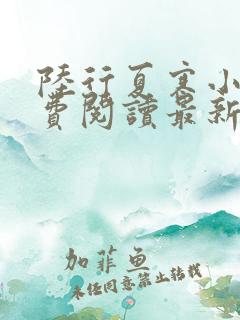 陸行夏寒小
費閱讀最新
加菲鱼
未经同意禁止转载